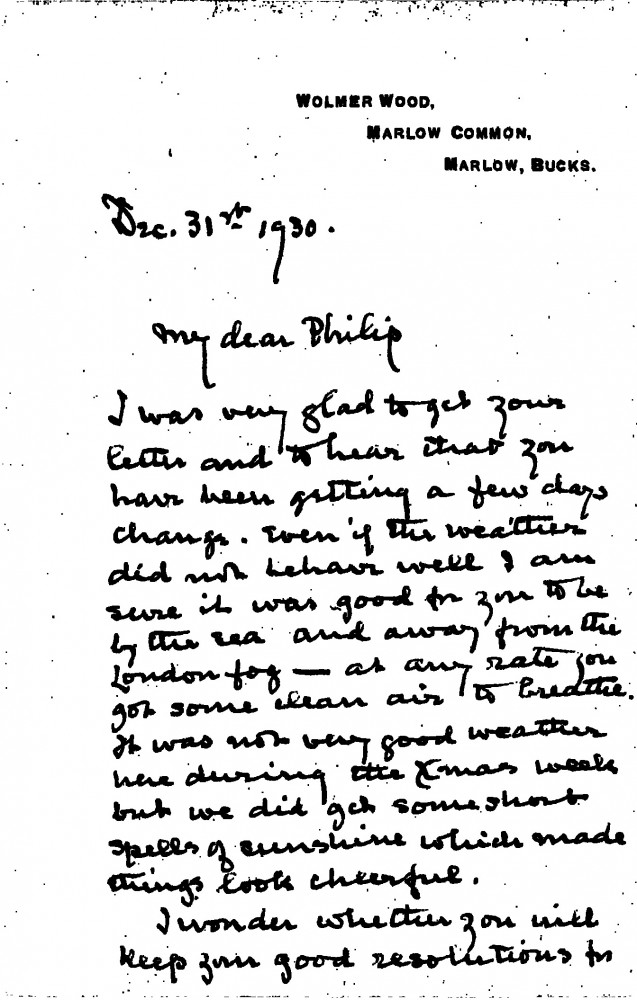 WOLMER WOOD,
MARLOW COMMON,
MARLOW, BUCKS.
Dec. 31st 1930.
My dear Philip
I was very glad to get your
letter and to hear that you
have been getting a few days
change. Even if the weather
did not behave well I am
sure it was good for you to be
by the sea and away from the
London fog — at any rate you
got some clean air to breathe.
It was not very good weather
here during the Xmas week
but we did get some short
spells of sunshine which made
things look cheerful.
I wonder whether you will
keep your good resolutions for